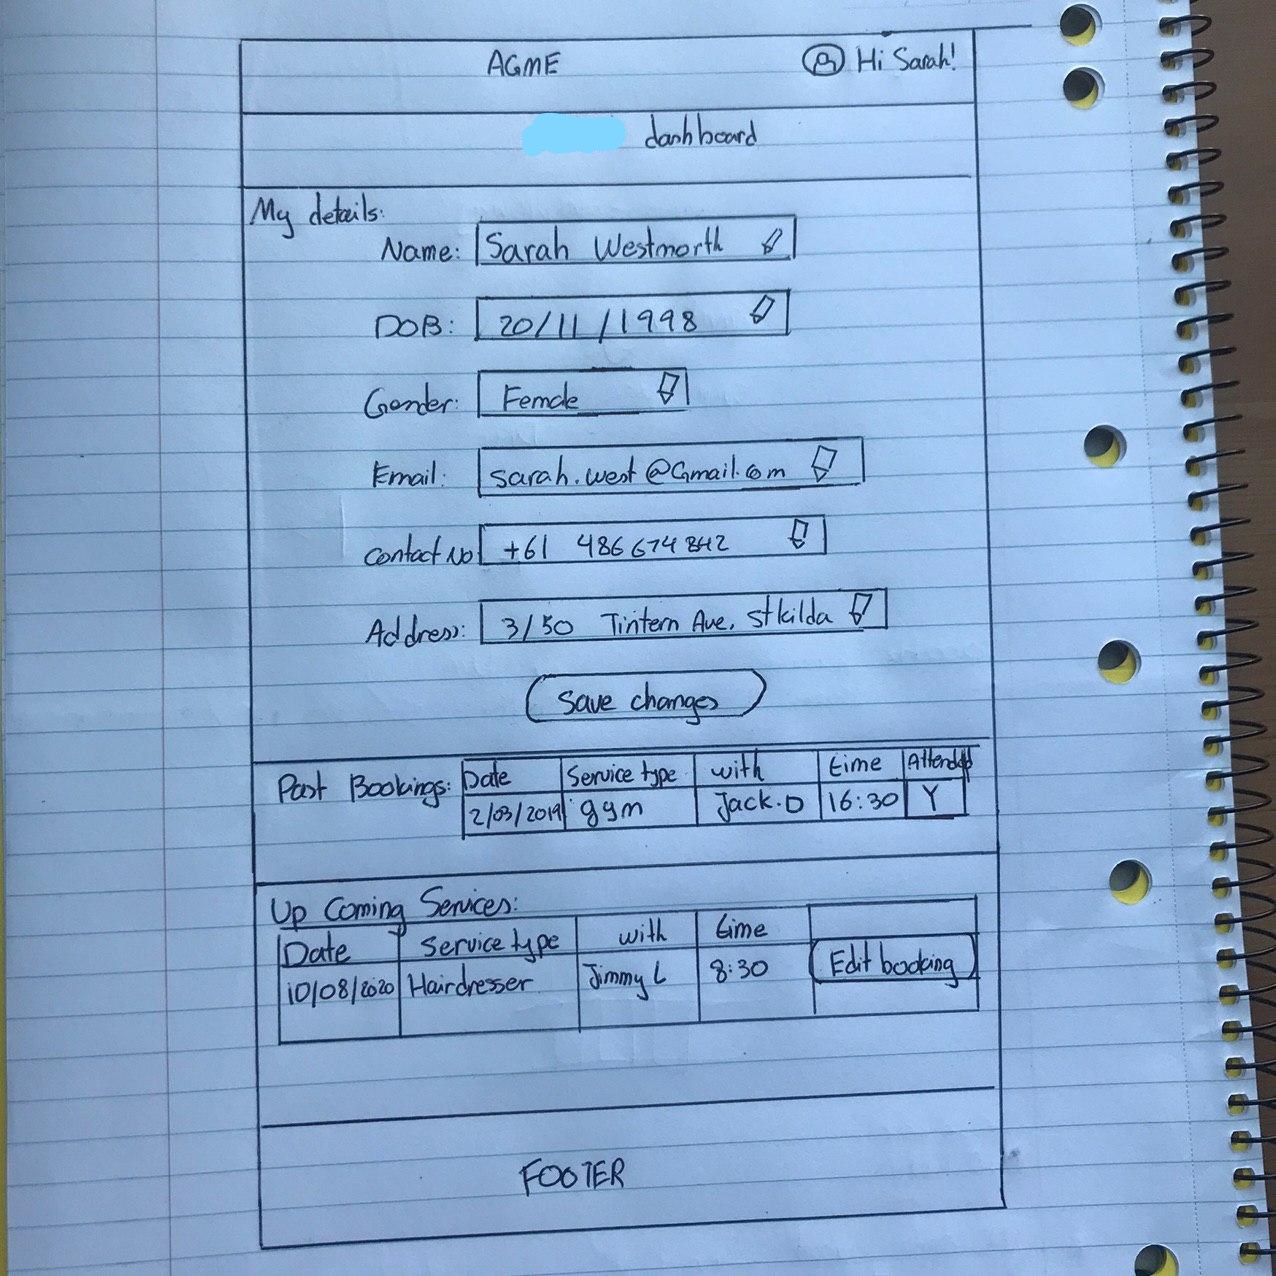 AGME Hi Sarah!
dashboard
My details:
Name: Sarah Westmorth
DOB: 20/11/1998
Gender: Female
Email: sarah.west@Gmail.com
Contact No +61 486 674 842
Address: 3/50 Tintern Ave, St kilda
Save changes
Past Bookings: Date Service type with time Attended
2/03/2019 gym Jack.D 16:30 Y
Up Coming Services:
Date Service type with time
10/08/2020 Hairdresser Jimmy L 8:30 Edit booking
FOOTER